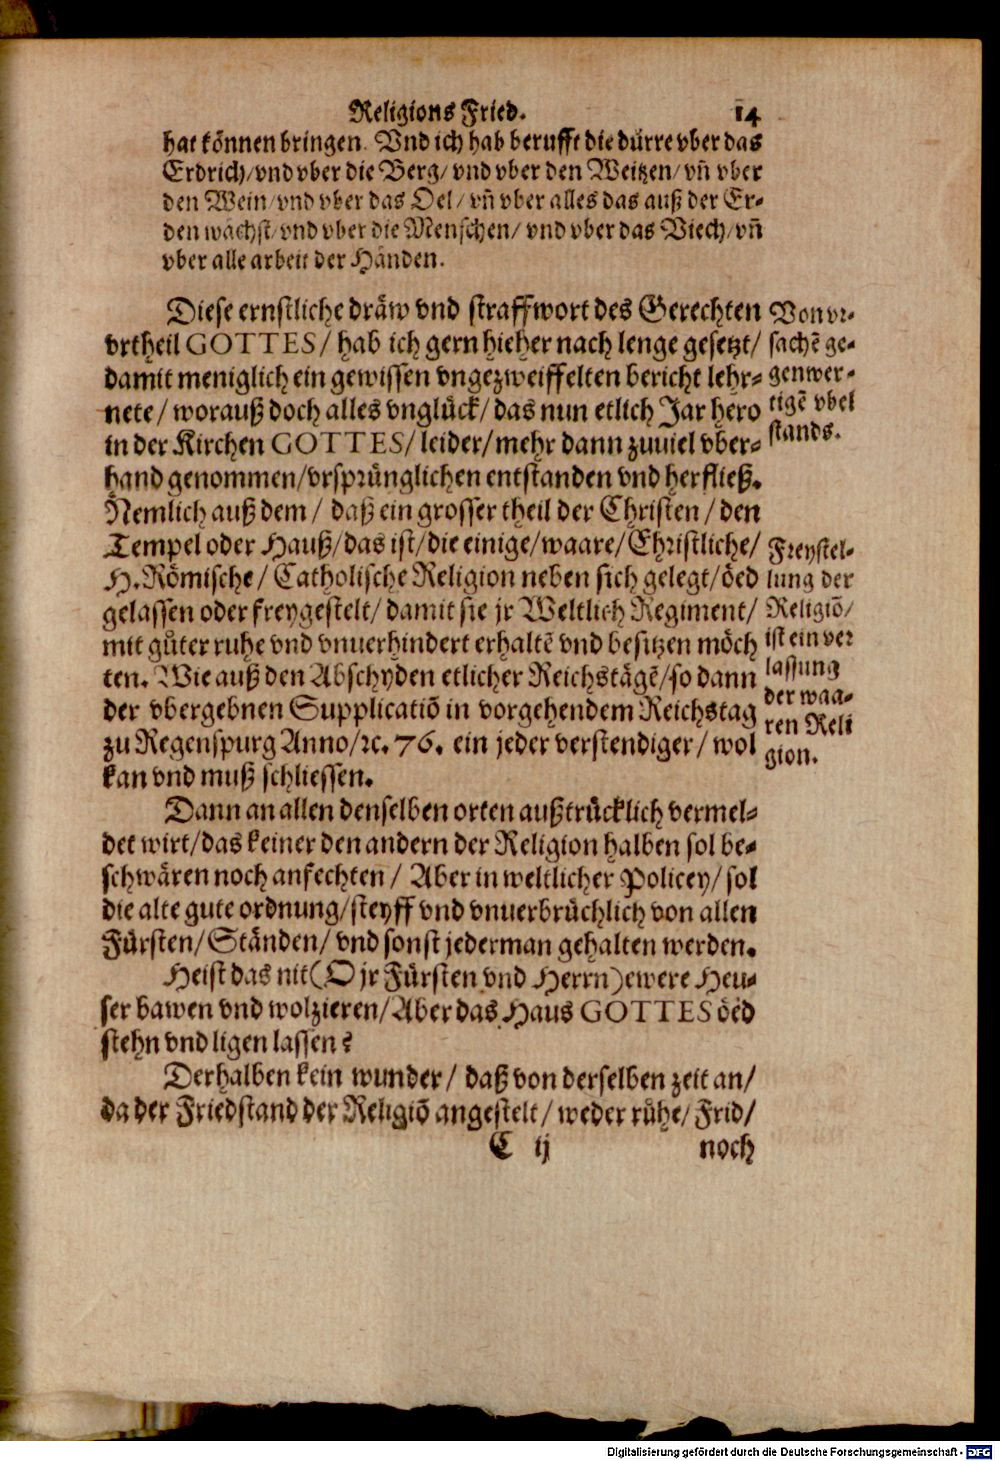 Religions Fried. 14
hat können bringen. Vnd ich hab berufft die dürre vber das
Erdrich/ vnd vber die Berg/ vnd vber den Weitzen/ vñ vber
den Wein/ vnd vber das Oel/ vñ vber alles das auß der Er-
den wächst/ vnd vber die Menschen/ vnd vber das Viech/ vñ
vber alle arbeit der Händen.
Diese ernstliche dräw vnd straffwort des Gerechten
vrtheil GOTTES/ hab ich gern hieher nach lenge gesetzt/
damit meniglich ein gewissen vngezweiffelten bericht lehr-
nete/ worauß doch alles vnglück/ das nun etlich Jar hero
in der Kirchen GOTTES/ leider/ mehr dann zuuiel vber-
hand genommen/ vrsprünglichen entstanden vnd herfließ.
Nemlich auß dem/ daß ein grosser theil der Christen/ den
Tempel oder Hauß/ das ist/ die einige/ waare/ Christliche/
H. Römische/ Catholische Religion neben sich gelegt/ öed
gelassen oder freygestelt/ damit sie jr Weltlich Regiment/
mit gůter ruhe vnd vnuerhindert erhaltē vnd besitzen möch
ten. Wie auß den Abschyden etlicher Reichstägē/ so dann
der vbergebnen Supplicatiō in vorgehendem Reichstag
zu Regenspurg Anno/ ꝛc. 76. ein jeder verstendiger/ wol
kan vnd muß schliessen.
Dann an allen denselben orten außtrücklich vermel-
det wirt/ das keiner den andern der Religion halben sol be-
schwären noch anfechten/ Aber in weltlicher Policey/ sol
die alte gute ordnung/ steyff vnd vnuerbrüchlich von allen
Fürsten/ Ständen/ vnd sonst jederman gehalten werden.
Heist das nit (O jr Fürsten vnd Herrn) ewere Heu-
ser bawen vnd wolzieren/ Aber das Haus GOTTES öed
stehn vnd ligen lassen?
Derhalben kein wunder/ daß von derselben zeit an/
da der Friedstand der Religiō angestelt/ weder růhe/ Frid/
C ij noch
Von vr-
sachē ge-
genwer-
tigē vbel
stands.
Freystel-
lung der
Religiō/
ist ein ver
lassung
der waa-
ren Reli
gion.
Digitalisierung gefördert durch die Deutsche Forschungsgemeinschaft - DFG